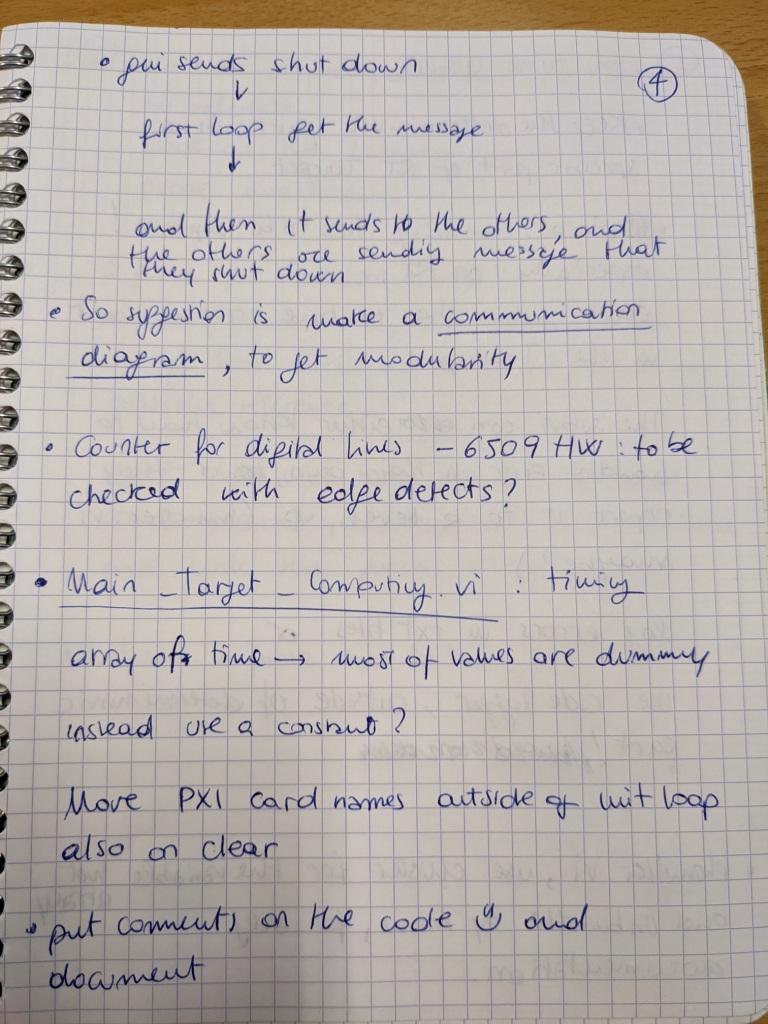 • gui sends shut down
④
↓
first loop get the message
↓
and then it sends to the others, and
the others are sending message that
they shut down
• So suggestion is make a communication
diagram, to get modularity
• Counter for digital lines - 6509 HW : to be
checked with edge detects?
• Main_Target_Computing.vi : timing
array of time → most of values are dummy
instead use a constant?
Move PXI card names outside of init loop
also on clear
• put comments on the code ☺ and
document